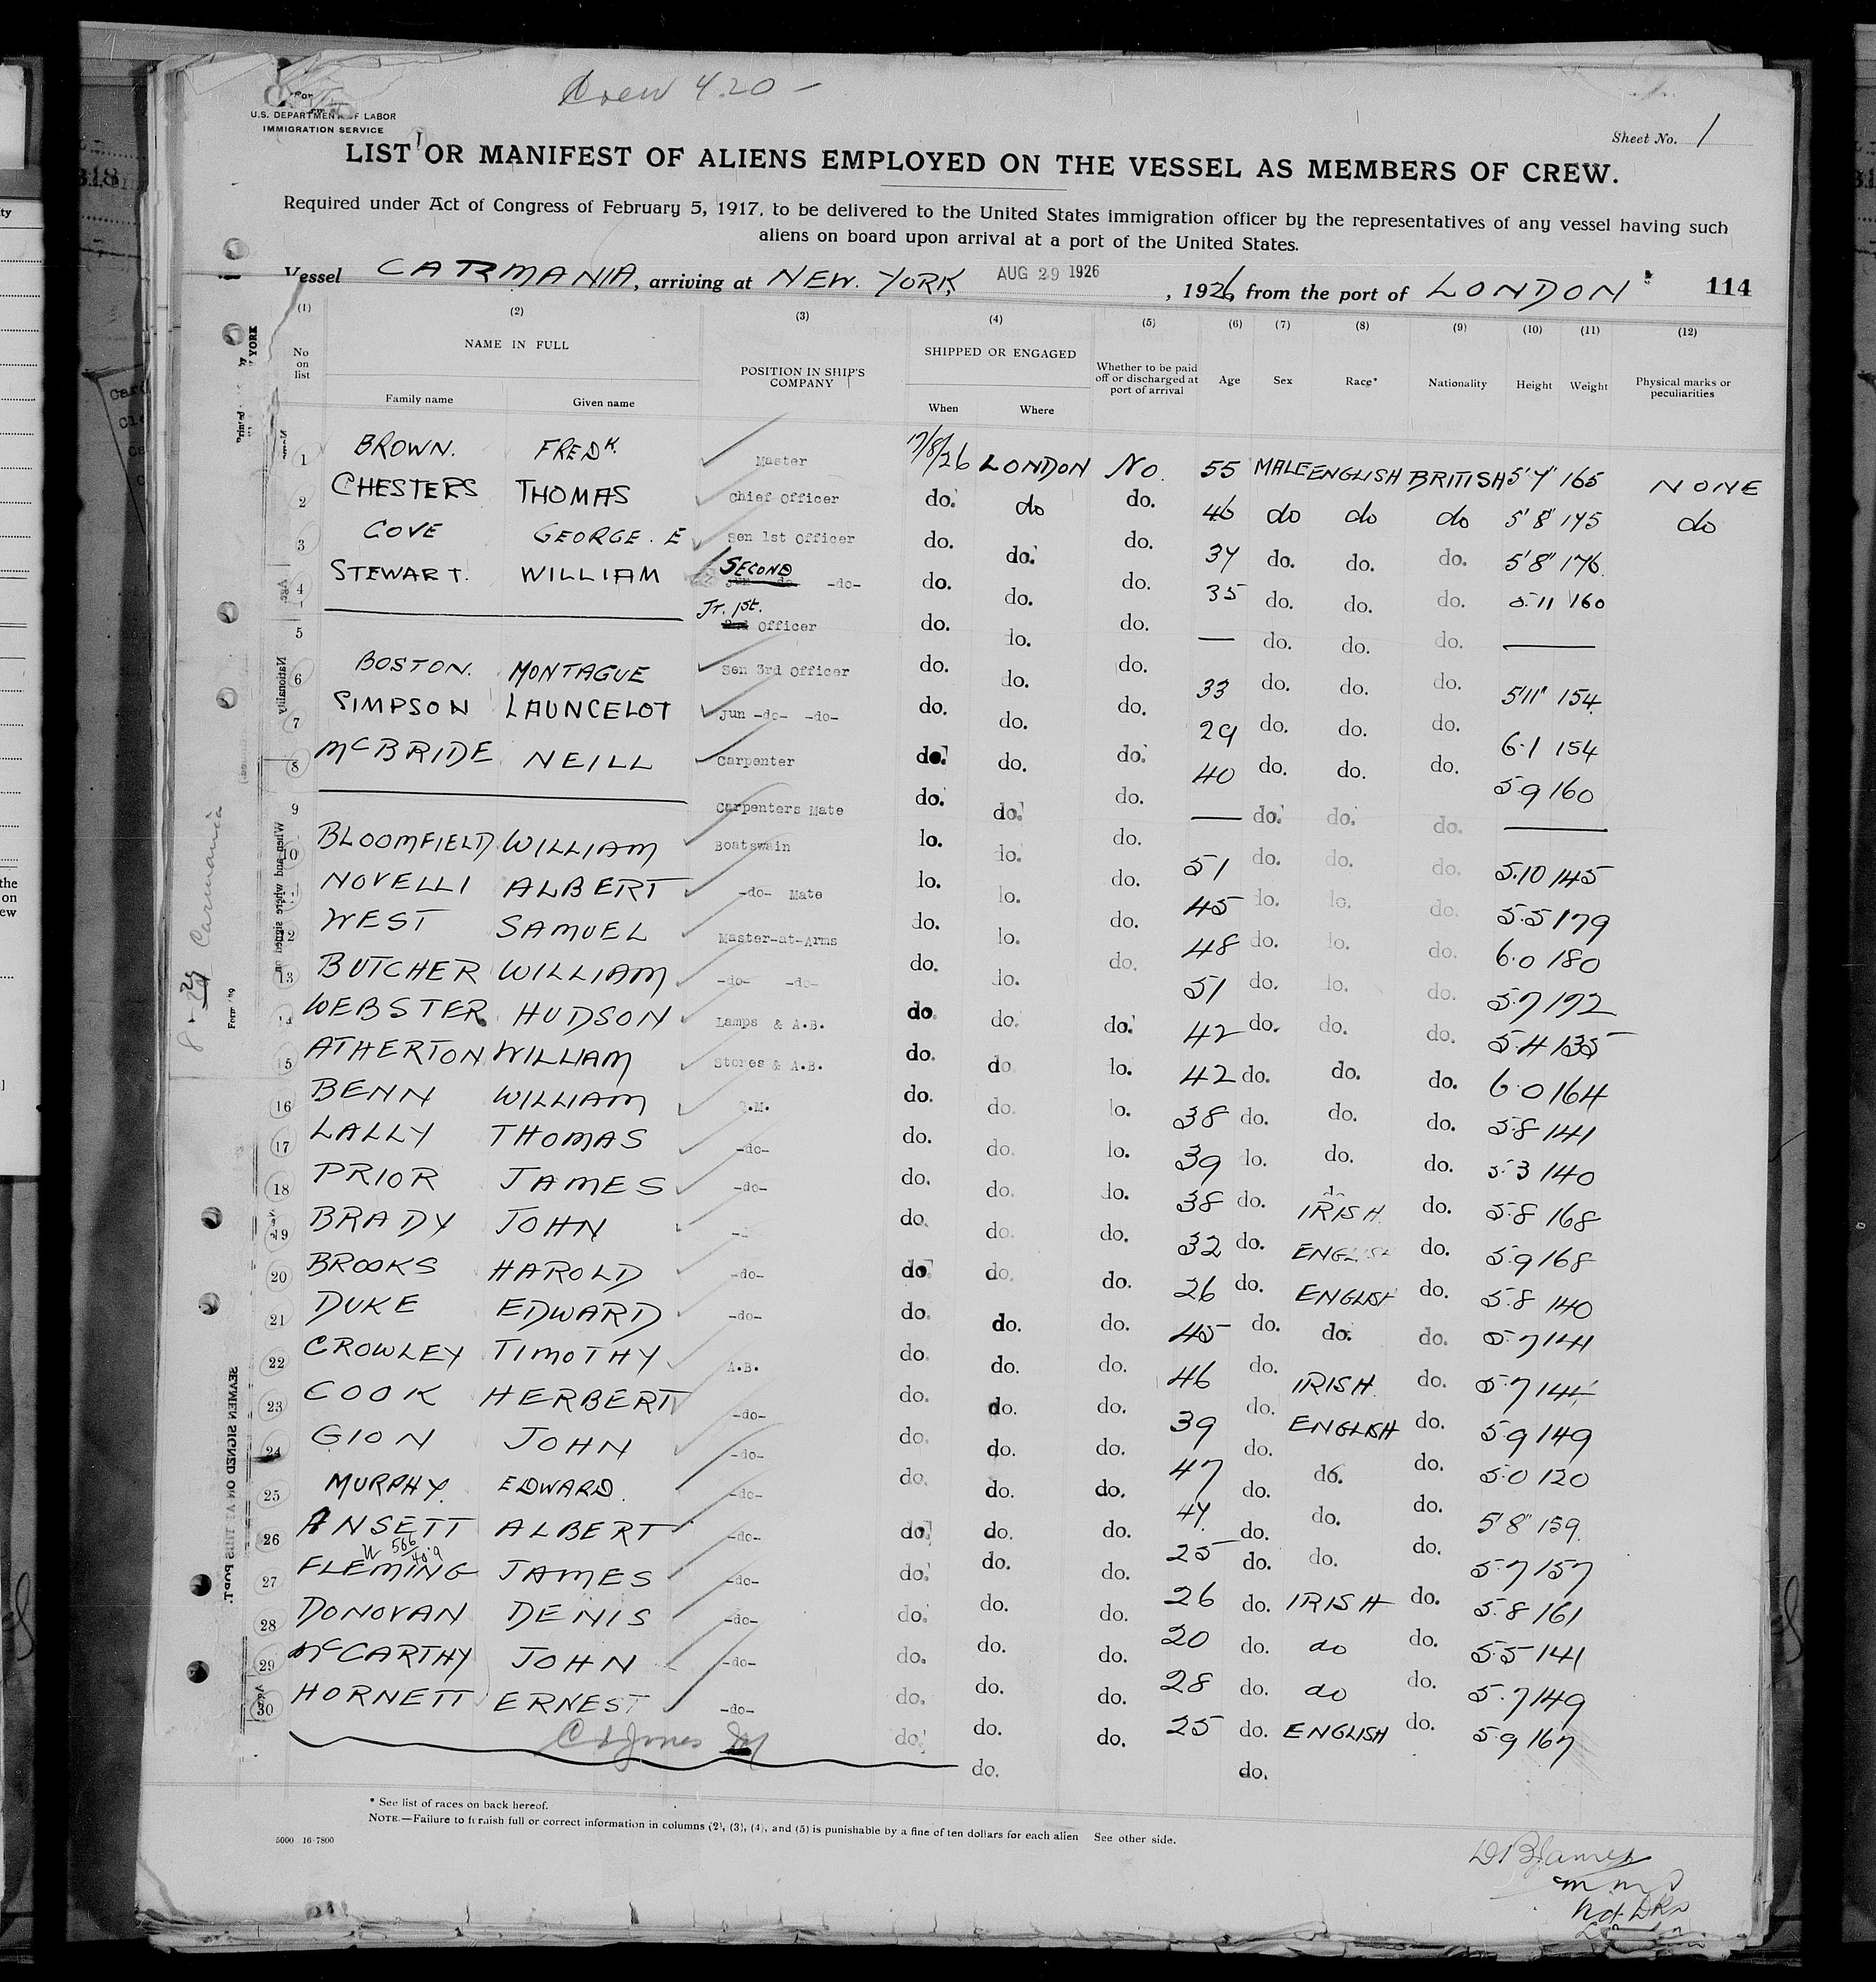 Crew 420 -
U.S. DEPARTMENT OF LABOR
IMMIGRATION SERVICE
Sheet No. 1
LIST OR MANIFEST OF ALIENS EMPLOYED ON THE VESSEL AS MEMBERS OF CREW.
Required under Act of Congress of February 5, 1917, to be delivered to the United States immigration officer by the representatives of any vessel having such
aliens on board upon arrival at a port of the United States.
Vessel CARMANIA, arriving at NEW YORK, AUG 29 1926, 1926, from the port of LONDON 114
(1) (2) (3) (4) (5) (6) (7) (8) (9) (10) (11) (12)
No on list NAME IN FULL Family name Given name POSITION IN SHIP'S COMPANY SHIPPED OR ENGAGED When Where Whether to be paid off or discharged at port of arrival Age Sex Race* Nationality Height Weight Physical marks or peculiarities
1 BROWN. FREDK. Master 17/8/26 LONDON No. 55 MALE ENGLISH BRITISH 5'7" 165 NONE
2 CHESTERS THOMAS Chief Officer do. do do. 46 do do do 5'8" 175 do
3 COVE GEORGE. E Sen 1st Officer do. do. do. 37 do. do. do. 5'8" 176.
4 STEWART. WILLIAM SECOND Jun -do- -do- do. do. do. 35 do. do. do. 5.11 160
5 Jr. 1st. 2nd Officer do. do. do. — do. do. do. —
6 BOSTON. MONTAGUE Sen 3rd Officer do. do. do. 33 do. do. do. 5'11" 154
7 SIMPSON LAUNCELOT Jun -do- -do- do. do. do. 29 do. do. do. 6.1 154
8 McBRIDE NEILL Carpenter do. do. do. 40 do. do. do. 5.9 160
9 Carpenters Mate do. do. do. — do. do. do. —
10 BLOOMFIELD WILLIAM Boatswain do. do. do. 51 do. do. do. 5.10 145
11 NOVELLI ALBERT -do- Mate do. do. do. 45 do. do. do. 5.5 179
12 WEST SAMUEL Master-at-Arms do. do. do. 48 do. do. do. 6.0 180
13 BUTCHER WILLIAM -do- -do- do. do. do. 51 do. do. do. 5.7 172
14 WEBSTER HUDSON Lamps & A.B. do. do. do. 42 do. do. do. 5.4 135
15 ATHERTON WILLIAM Stores & A.B. do. do do. 42 do. do. do. 6.0 164
16 BENN WILLIAM Q.M. do. do. do. 38 do. do. do. 5.8 141
17 LALLY THOMAS -do- do. do. do. 39 do. do. do. 5.3 140
18 PRIOR JAMES -do- do. do. do. 38 do. IRISH do. 5.8 168
19 BRADY JOHN do. do. do. 32 do. ENGLISH do. 5.9 168
20 BROOKS HAROLD -do- do. do. do. 26 do. ENGLISH do. 5.8 140
21 DUKE EDWARD -do- do. do. do. 45 do. do. do. 5.7 141
22 CROWLEY TIMOTHY A.B. do. do. do. 46 do. IRISH. do. 5.7 144
23 COOK HERBERT -do- do. do. do. 39 do. ENGLISH do. 5.9 149
24 GION JOHN -do- do. do. do. 47 do. do. do. 5.0 120
25 MURPHY. EDWARD. -do- do. do. do. 47. do. do. do. 5'8" 159.
26 ANSETT ALBERT -do- do. do. do. 25 do. do. do. 5.7 157
27 FLEMING JAMES -do- do. do. do. 26 do. IRISH do. 5.8 161
28 DONOVAN DENIS -do- do. do. do. 20 do. do do. 5.5 141
29 McCARTHY JOHN -do- do. do. do. 28 do. do do. 5.7 149
30 HORNETT ERNEST -do- do. do. do. 25 do. ENGLISH do. 5.9 167
do. do. do.
* See list of races on back hereof.
NOTE.—Failure to furnish full or correct information in columns (2), (3), (4), and (5) is punishable by a fine of ten dollars for each alien See other side.
5000 16-7800
8-29 Carmania